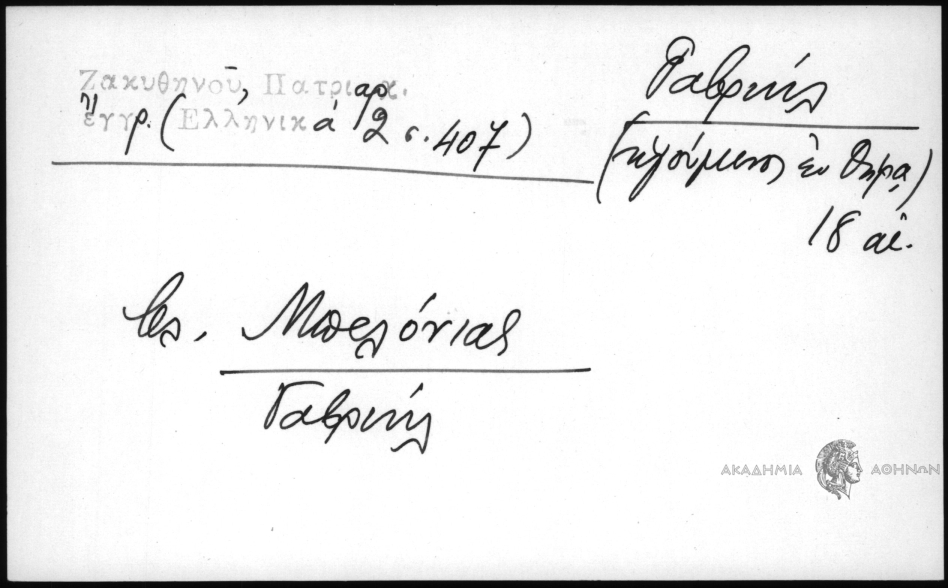 Ζακυθηνοῦ, Πατριαρχ.
ἔγγρ. (Ἑλληνικά 2 σ. 407)
Γαβριήλ
(ἡγούμενος ἐν Θήρᾳ)
18 αἰ.
βλ. Μπελόνιας
Γαβριήλ
ΑΚΑΔΗΜΙΑ ΑΘΗΝΩΝ